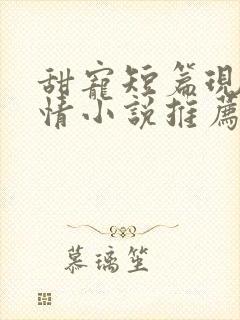 甜寵短篇現
情小說推薦
慕璃笙